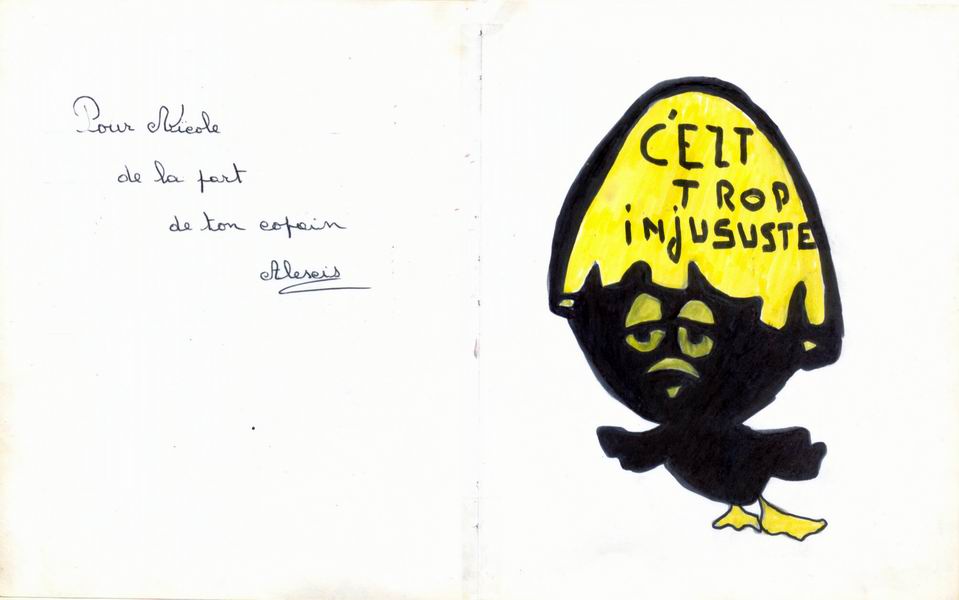 Pour Nicole
de la part
de ton copain
Alexis
C'EZT
TROP
iNjUSUSTE